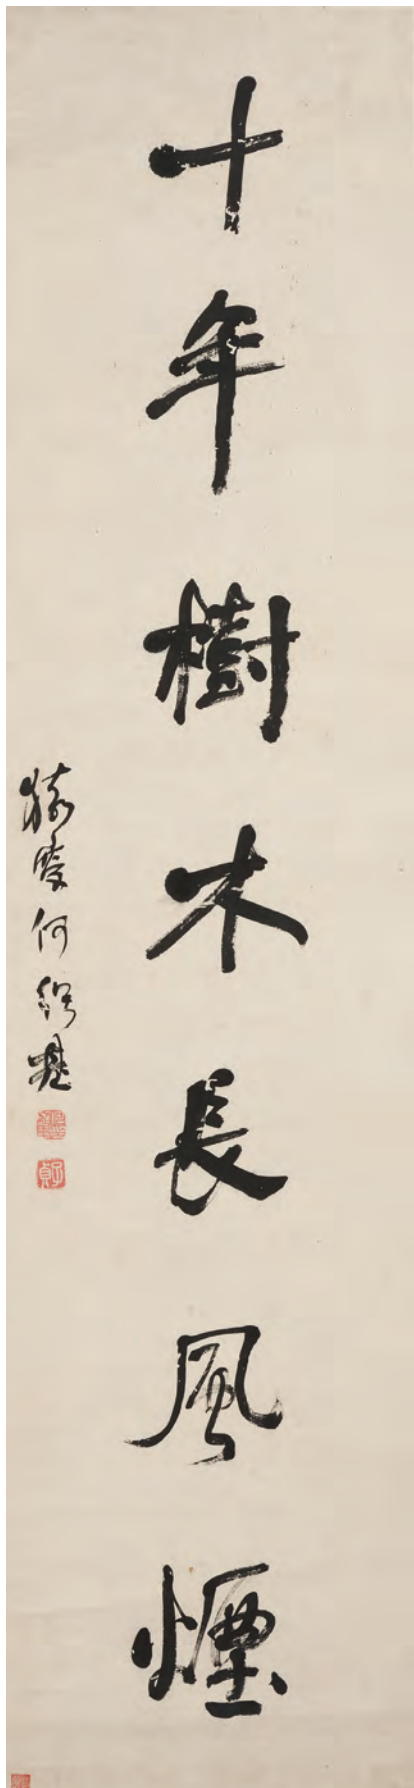 十年樹木長風煙
猨叟何紹基
子貞